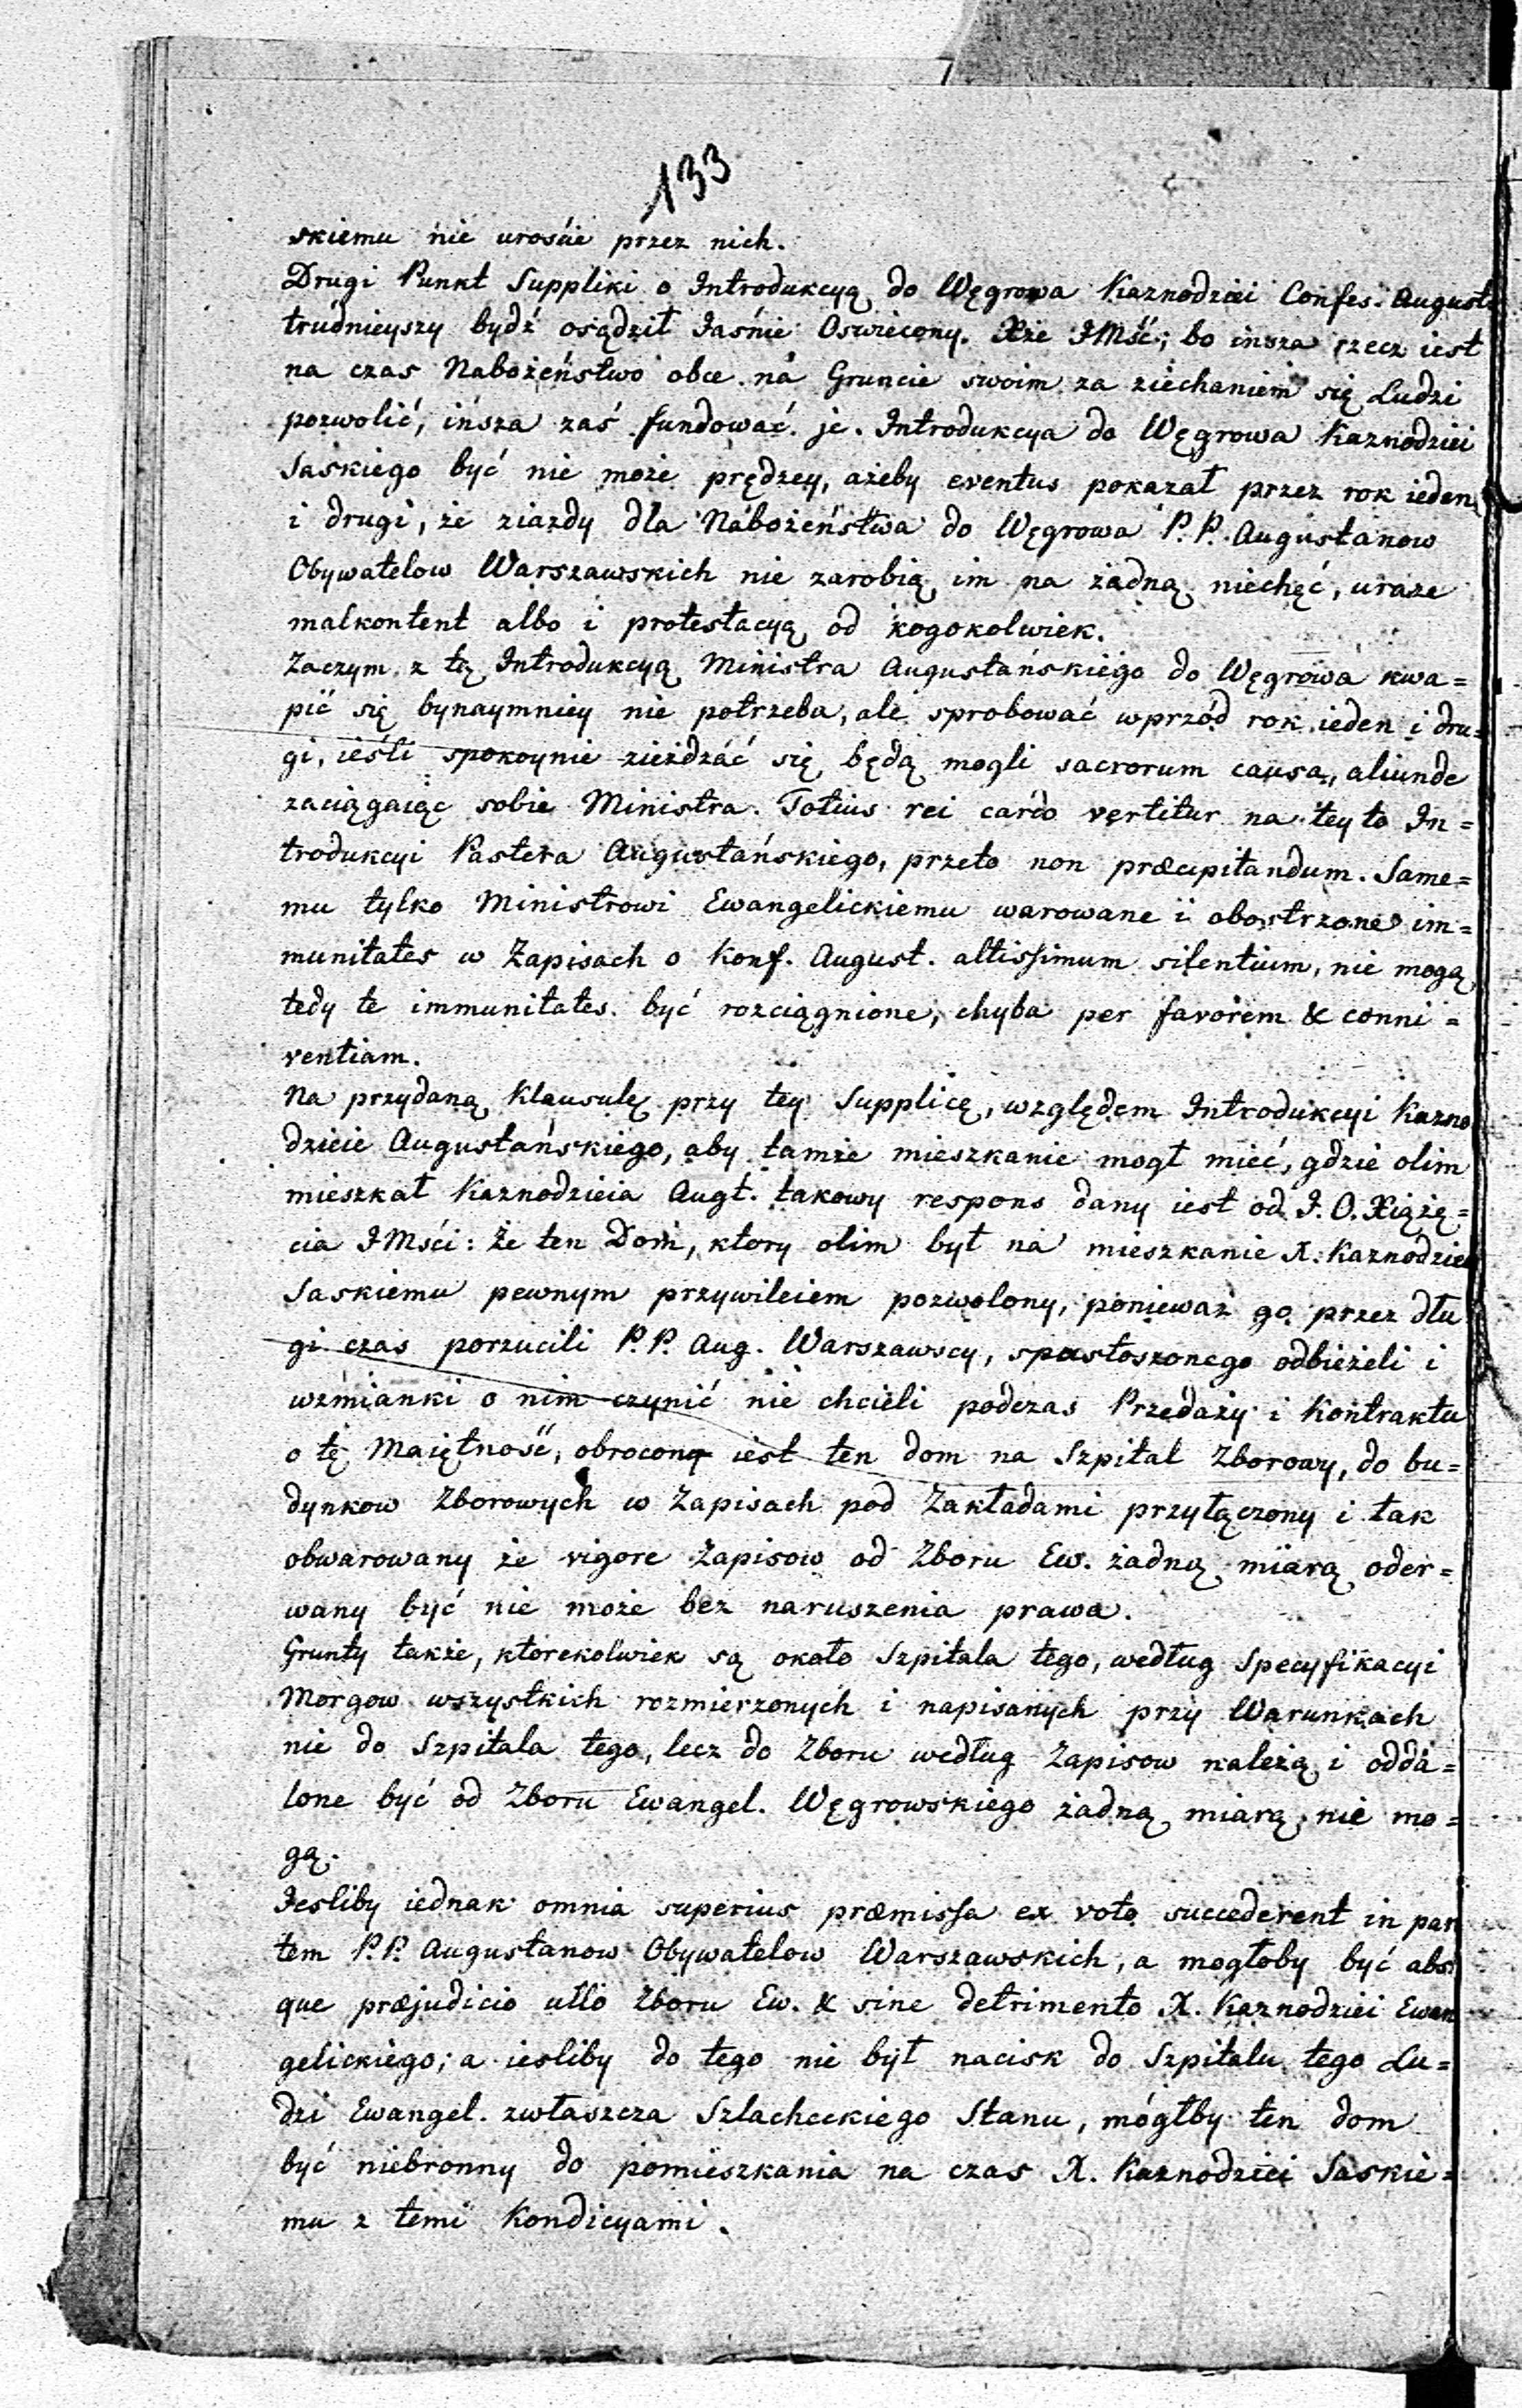 133
skiemu nie urośćie przez nich.
Drugi Punkt Suppliki o Introdukcyą do Węgrowa Kaznodziei Confes. August.
trudnieyszy bydź osądził Jaśnie Oswiecony. Xże JMść; bo insza rzecz iest
na czas Nabożeństwo obce na Gruncie swoim za ziechaniem się Ludzi
pozwolić, insza zaś fundować je. Introdukcya do Węgrowa Kaznodziei
Saskiego być nie może prędzey, ażeby eventus pokazał przez rok ieden
i drugi, że ziazdy dla Nabożeństwa do Węgrowa P.P. Augustanow
Obywatelow Warszawskich nie zarobią im na żadną niechęć, uraze
malkontent albo i protestacyą od kogokolwiek.
Zaczym z tą Introdukcyą Ministra Augustańskiego do Węgrowa kwa=
pić się bynaymniey nie potrzeba, ale sprobować wprzód rok ieden i dru=
gi, ieśli spokoynie zieżdżáć się będą mogli sacrorum causa, aliunde
zaciągaiąc sobie Ministra. Totius rei cardo vertitur na tey to In=
trodukcyi Pastera Augustańskiego, przeto non præcipitandum. Same=
mu tylko Ministrowi Ewangelickiemu warowane i obostrzone im=
munitates w Zapisach o Konf. August. altissimum silentium, nie mogą
tedy te immunitates być rozciągnione, chyba per favorem & conni=
ventiam.
Na przydaną Klausulę przy tey Supplicę, względem Introdukcyi Kazno
dzieie Augustańskiego, aby tamże mieszkanie mogł mieć, gdzie olim
mieszkał Kaznodzieia Augt. takowy respons dany iest od J. O. Xiążę=
cia JMści: Że ten Dom, ktory olim był na mieszkanie X. Kaznodziei
Saskiemu pewnym przywileiem pozwolony, ponieważ go przez dłu
gi czas porzucili P.P. Aug. Warszawscy, spustoszonego odbieżeli i
wzmianki o nim czynić nie chcieli podczas Przedaży i Kontraktu
o tę Maiętność, obrocony iest ten dom na Szpital Zborowy, do bu=
dynkow Zborowych w Zapisach pod Zakładami przyłączony i tak
obwarowany że vigore Zapisow od Zboru Ew. żadną miarą oder=
wany być nie może bez naruszenia prawa.
Grunty także, ktorekolwiek są około Szpitala tego, według Specyfikacyi
Morgow wszystkich rozmierzonych i napisanych przy Warunkach
nie do Szpitala tego, lecz do Zboru według Zapisow należą i oddá=
lone być od Zboru Ewangel. Węgrowskiego żadną miarą nie mo=
gą.
Jesliby iednak omnia superius præmissa ex voto succederent in par
tem P.P. Augustanow Obywatelow Warszawskich, a mogłoby być abs
que præjudicio ullo Zboru Ew. & sine detrimento X. Kaznodziei Ewan
gelickiego; a iesliby do tego nie był nacisk do Szpitalu tego Lu=
dzi Ewangel. zwłaszcza Szlacheckiego Stanu, mógłby ten dom
być niebronny do pomieszkania na czas X. Kaznodziei Saskie=
mu z temi Kondicyami.